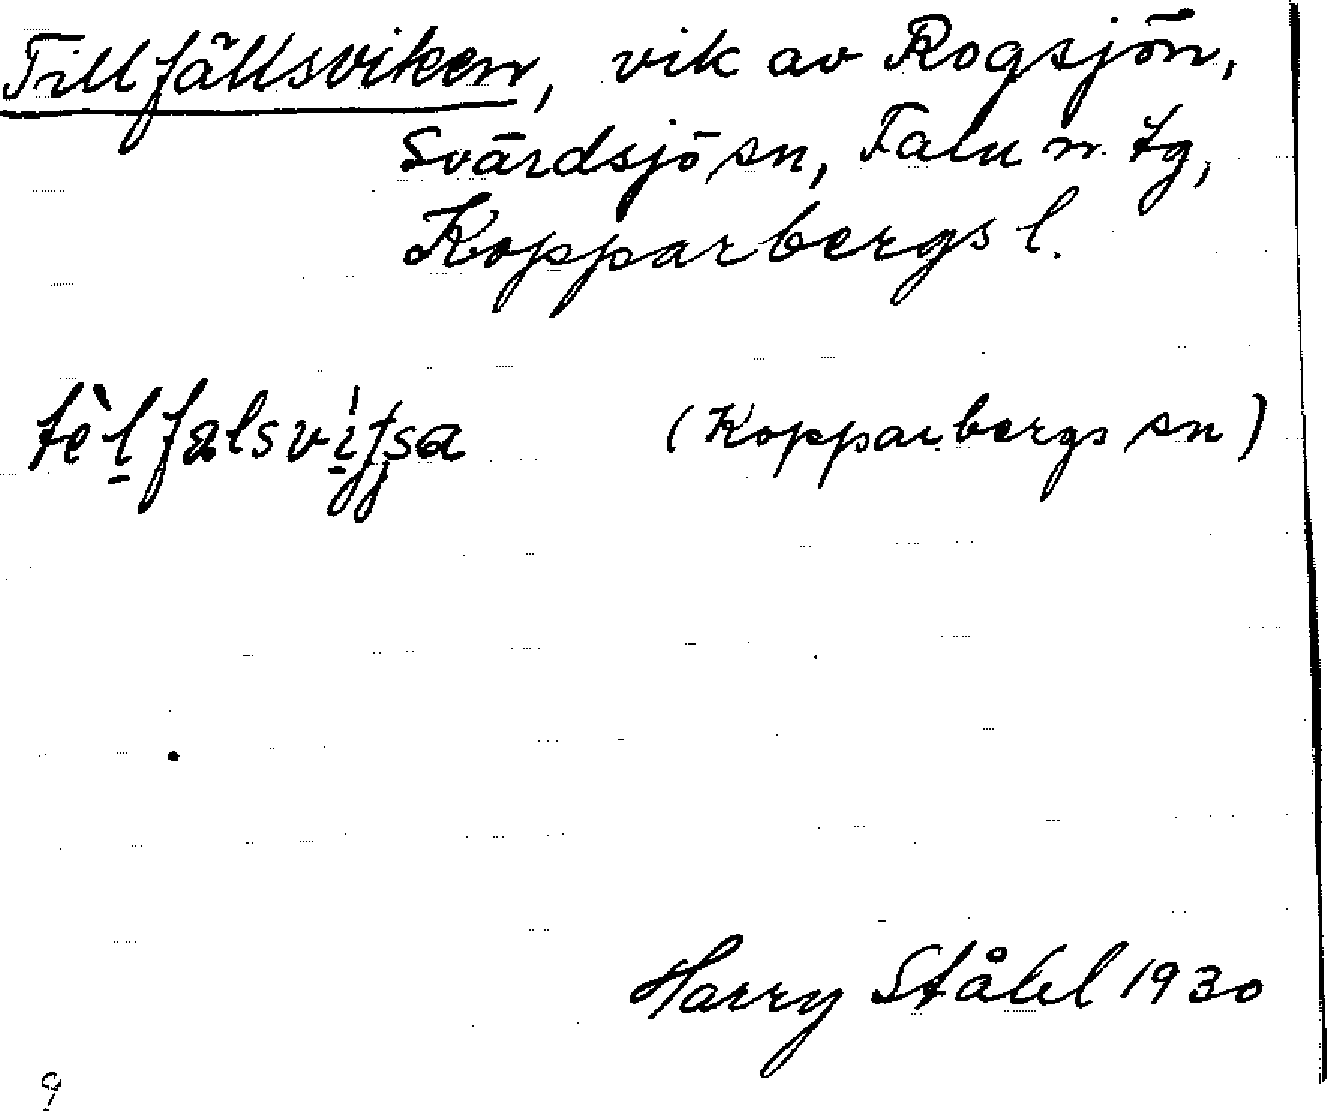 Tillfällsviken, vik av Rogsjön,
Svärdsjö sn, Falu n. tg,
Kopparbergs l.
(Kopparbergs sn)
Harry Ståhl 1930
9